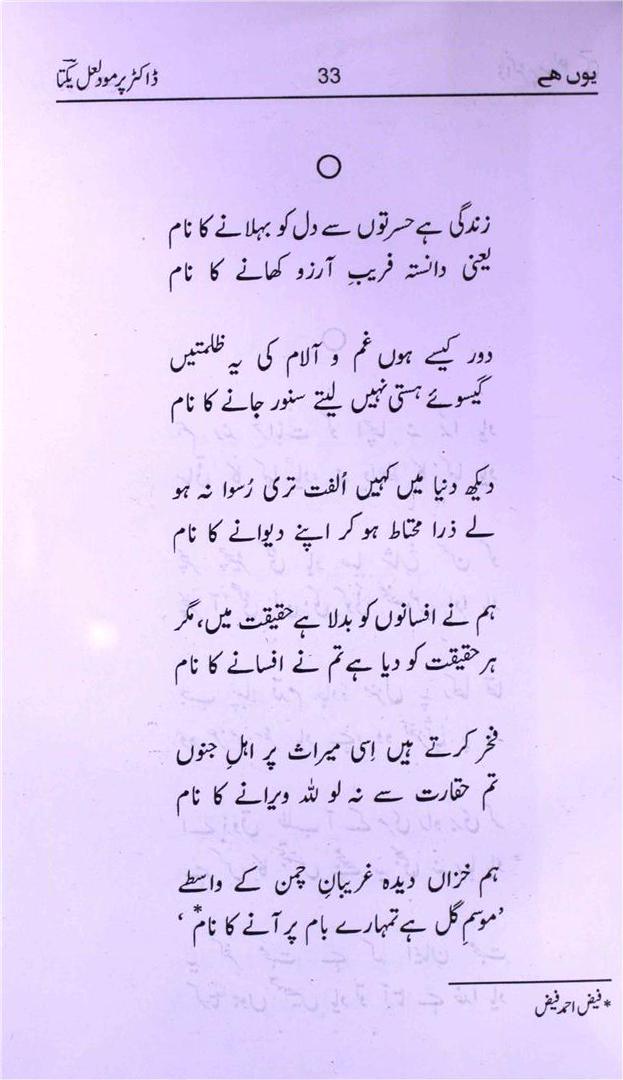 یوں ھے
33
ڈاکٹر پرمود لعل یکتا
زندگی ہے حسرتوں سے دل کو بہلانے کا نام
یعنی دانستہ فریبِ آرزو کھانے کا نام
دور کیسے ہوں غم و آلام کی یہ ظلمتیں
گیسوئے ہستی نہیں لیتے سنور جانے کا نام
دیکھ دنیا میں کہیں اُلفت تری رُسوا نہ ہو
لے ذرا محتاط ہو کر اپنے دیوانے کا نام
ہم نے افسانوں کو بدلا ہے حقیقت میں، مگر
ہر حقیقت کو دیا ہے تم نے افسانے کا نام
فخر کرتے ہیں اِسی میراث پر اہلِ جنوں
تم حقارت سے نہ لو للہ ویرانے کا نام
ہم خزاں دیدہ غریبانِ چمن کے واسطے
’موسمِ گل ہے تمہارے بام پر آنے کا نام*‘
* فیض احمد فیض